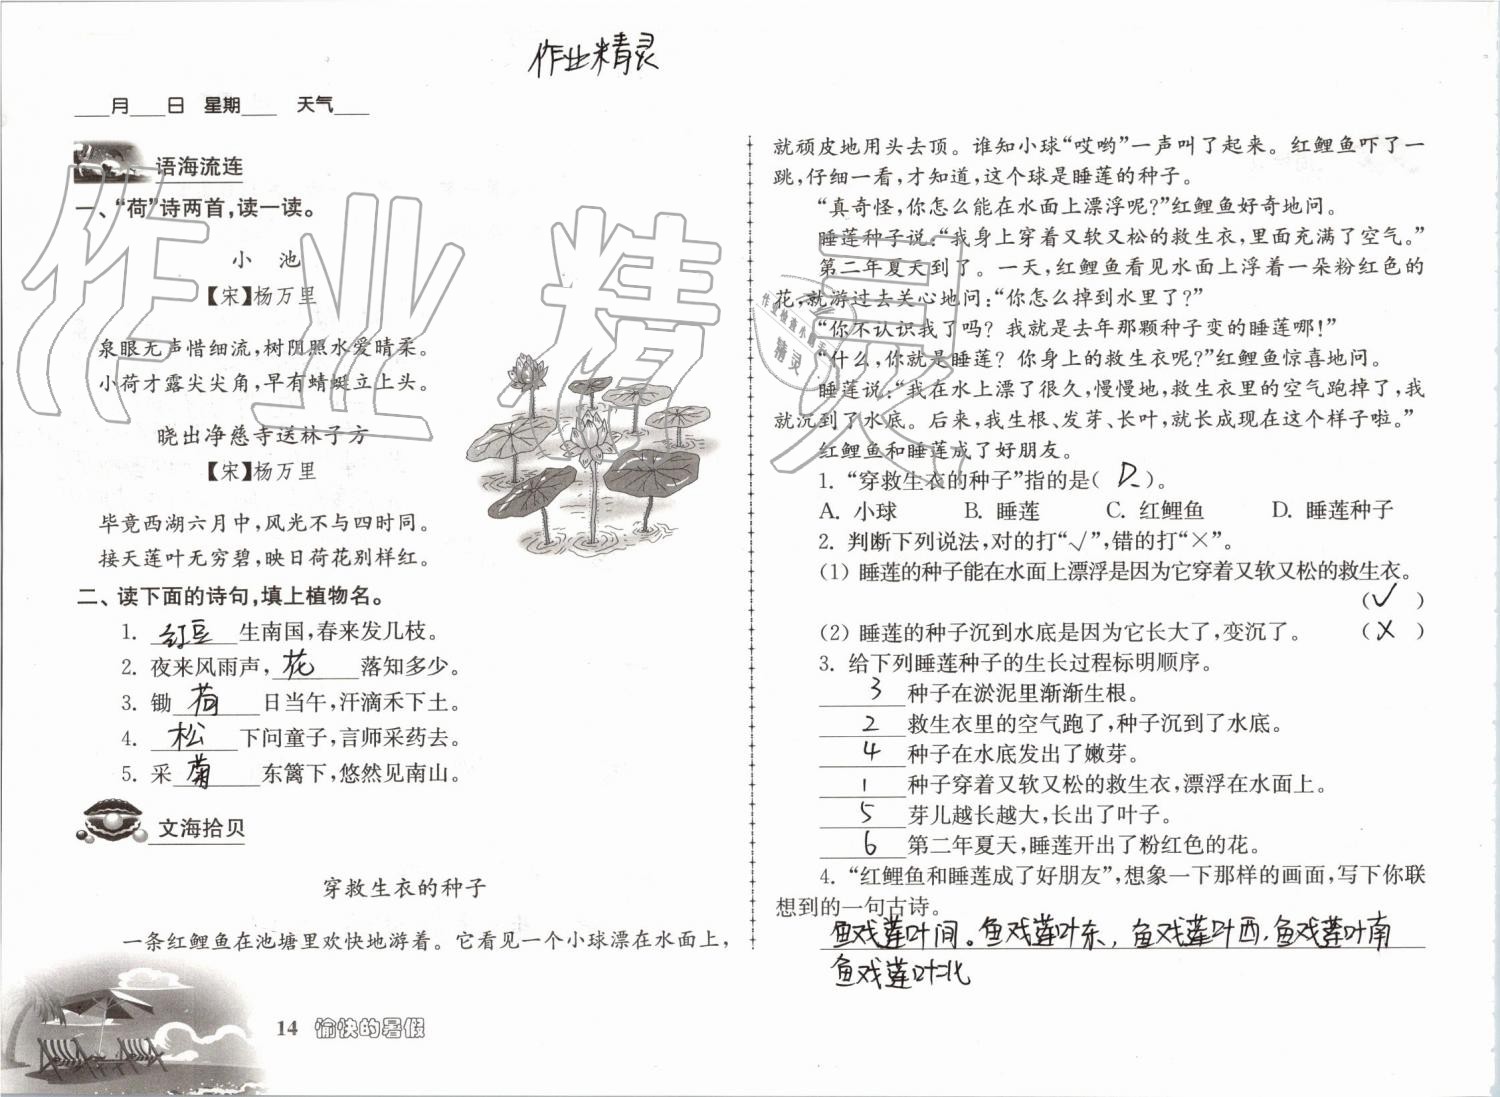 作业精灵
___月___日 星期___ 天气___
语海流连
一、“荷”诗两首，读一读。
小 池
【宋】杨万里
泉眼无声惜细流，树阴照水爱晴柔。
小荷才露尖尖角，早有蜻蜓立上头。
晓出净慈寺送林子方
【宋】杨万里
毕竟西湖六月中，风光不与四时同。
接天莲叶无穷碧，映日荷花别样红。
二、读下面的诗句，填上植物名。
1. 红豆 生南国，春来发几枝。
2. 夜来风雨声， 花 落知多少。
3. 锄 荷 日当午，汗滴禾下土。
4. 松 下问童子，言师采药去。
5. 采 菊 东篱下，悠然见南山。
文海拾贝
穿救生衣的种子
一条红鲤鱼在池塘里欢快地游着。它看见一个小球漂在水面上，
14 愉快的暑假
就顽皮地用头去顶。谁知小球“哎哟”一声叫了起来。红鲤鱼吓了一
跳，仔细一看，才知道，这个球是睡莲的种子。
“真奇怪，你怎么能在水面上漂浮呢？”红鲤鱼好奇地问。
睡莲种子说：“我身上穿着又软又松的救生衣，里面充满了空气。”
第二年夏天到了。一天，红鲤鱼看见水面上浮着一朵粉红色的
花，就游过去关心地问：“你怎么掉到水里了？”
“你不认识我了吗？我就是去年那颗种子变的睡莲哪！”
“什么，你就是睡莲？你身上的救生衣呢？”红鲤鱼惊喜地问。
睡莲说：“我在水上漂了很久，慢慢地，救生衣里的空气跑掉了，我
就沉到了水底。后来，我生根、发芽、长叶，就长成现在这个样子啦。”
红鲤鱼和睡莲成了好朋友。
1. “穿救生衣的种子”指的是（ D ）。
A. 小球 B. 睡莲 C. 红鲤鱼 D. 睡莲种子
2. 判断下列说法，对的打“√”，错的打“×”。
(1) 睡莲的种子能在水面上漂浮是因为它穿着又软又松的救生衣。
（ √ ）
(2) 睡莲的种子沉到水底是因为它长大了，变沉了。 （ × ）
3. 给下列睡莲种子的生长过程标明顺序。
3 种子在淤泥里渐渐生根。
2 救生衣里的空气跑了，种子沉到了水底。
4 种子在水底发出了嫩芽。
1 种子穿着又软又松的救生衣，漂浮在水面上。
5 芽儿越长越大，长出了叶子。
6 第二年夏天，睡莲开出了粉红色的花。
4. “红鲤鱼和睡莲成了好朋友”，想象一下那样的画面，写下你联
想到的一句古诗。
鱼戏莲叶间。鱼戏莲叶东，鱼戏莲叶西，鱼戏莲叶南
鱼戏莲叶北
作业精灵
作业检查小
精灵